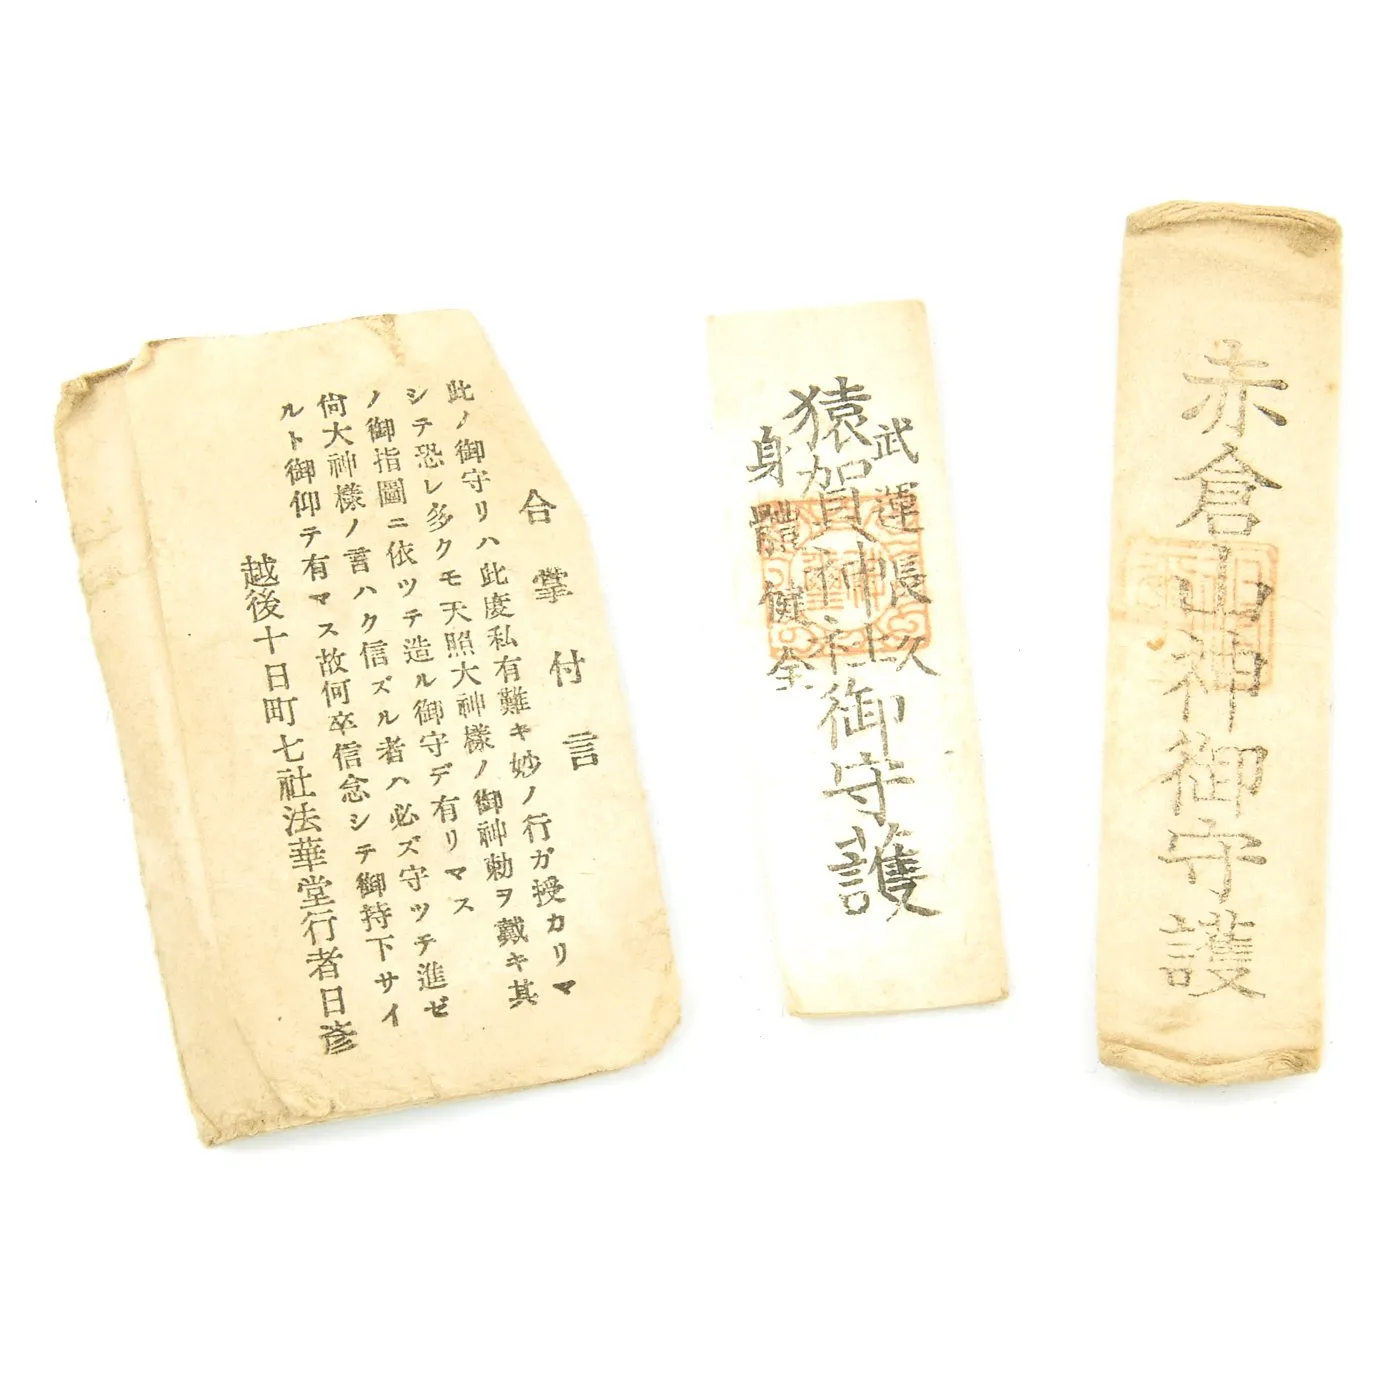 合掌付言
此ノ御守リハ此度私有難キ妙ノ行ガ授カリマ
シテ恐レ多クモ天照大神樣ノ御神勅ヲ戴キ其
ノ御指圖ニ依ツテ造ル御守デ有リマス
尙大神樣ノ言ハク信ズル者ハ必ズ守ツテ進ゼ
ルト御仰テ有マス故何卒信念シテ御持下サイ
越後十日町七社法華堂行者日彦
武運長久
猿賀神社御守護
身體健全
赤倉山神御守護